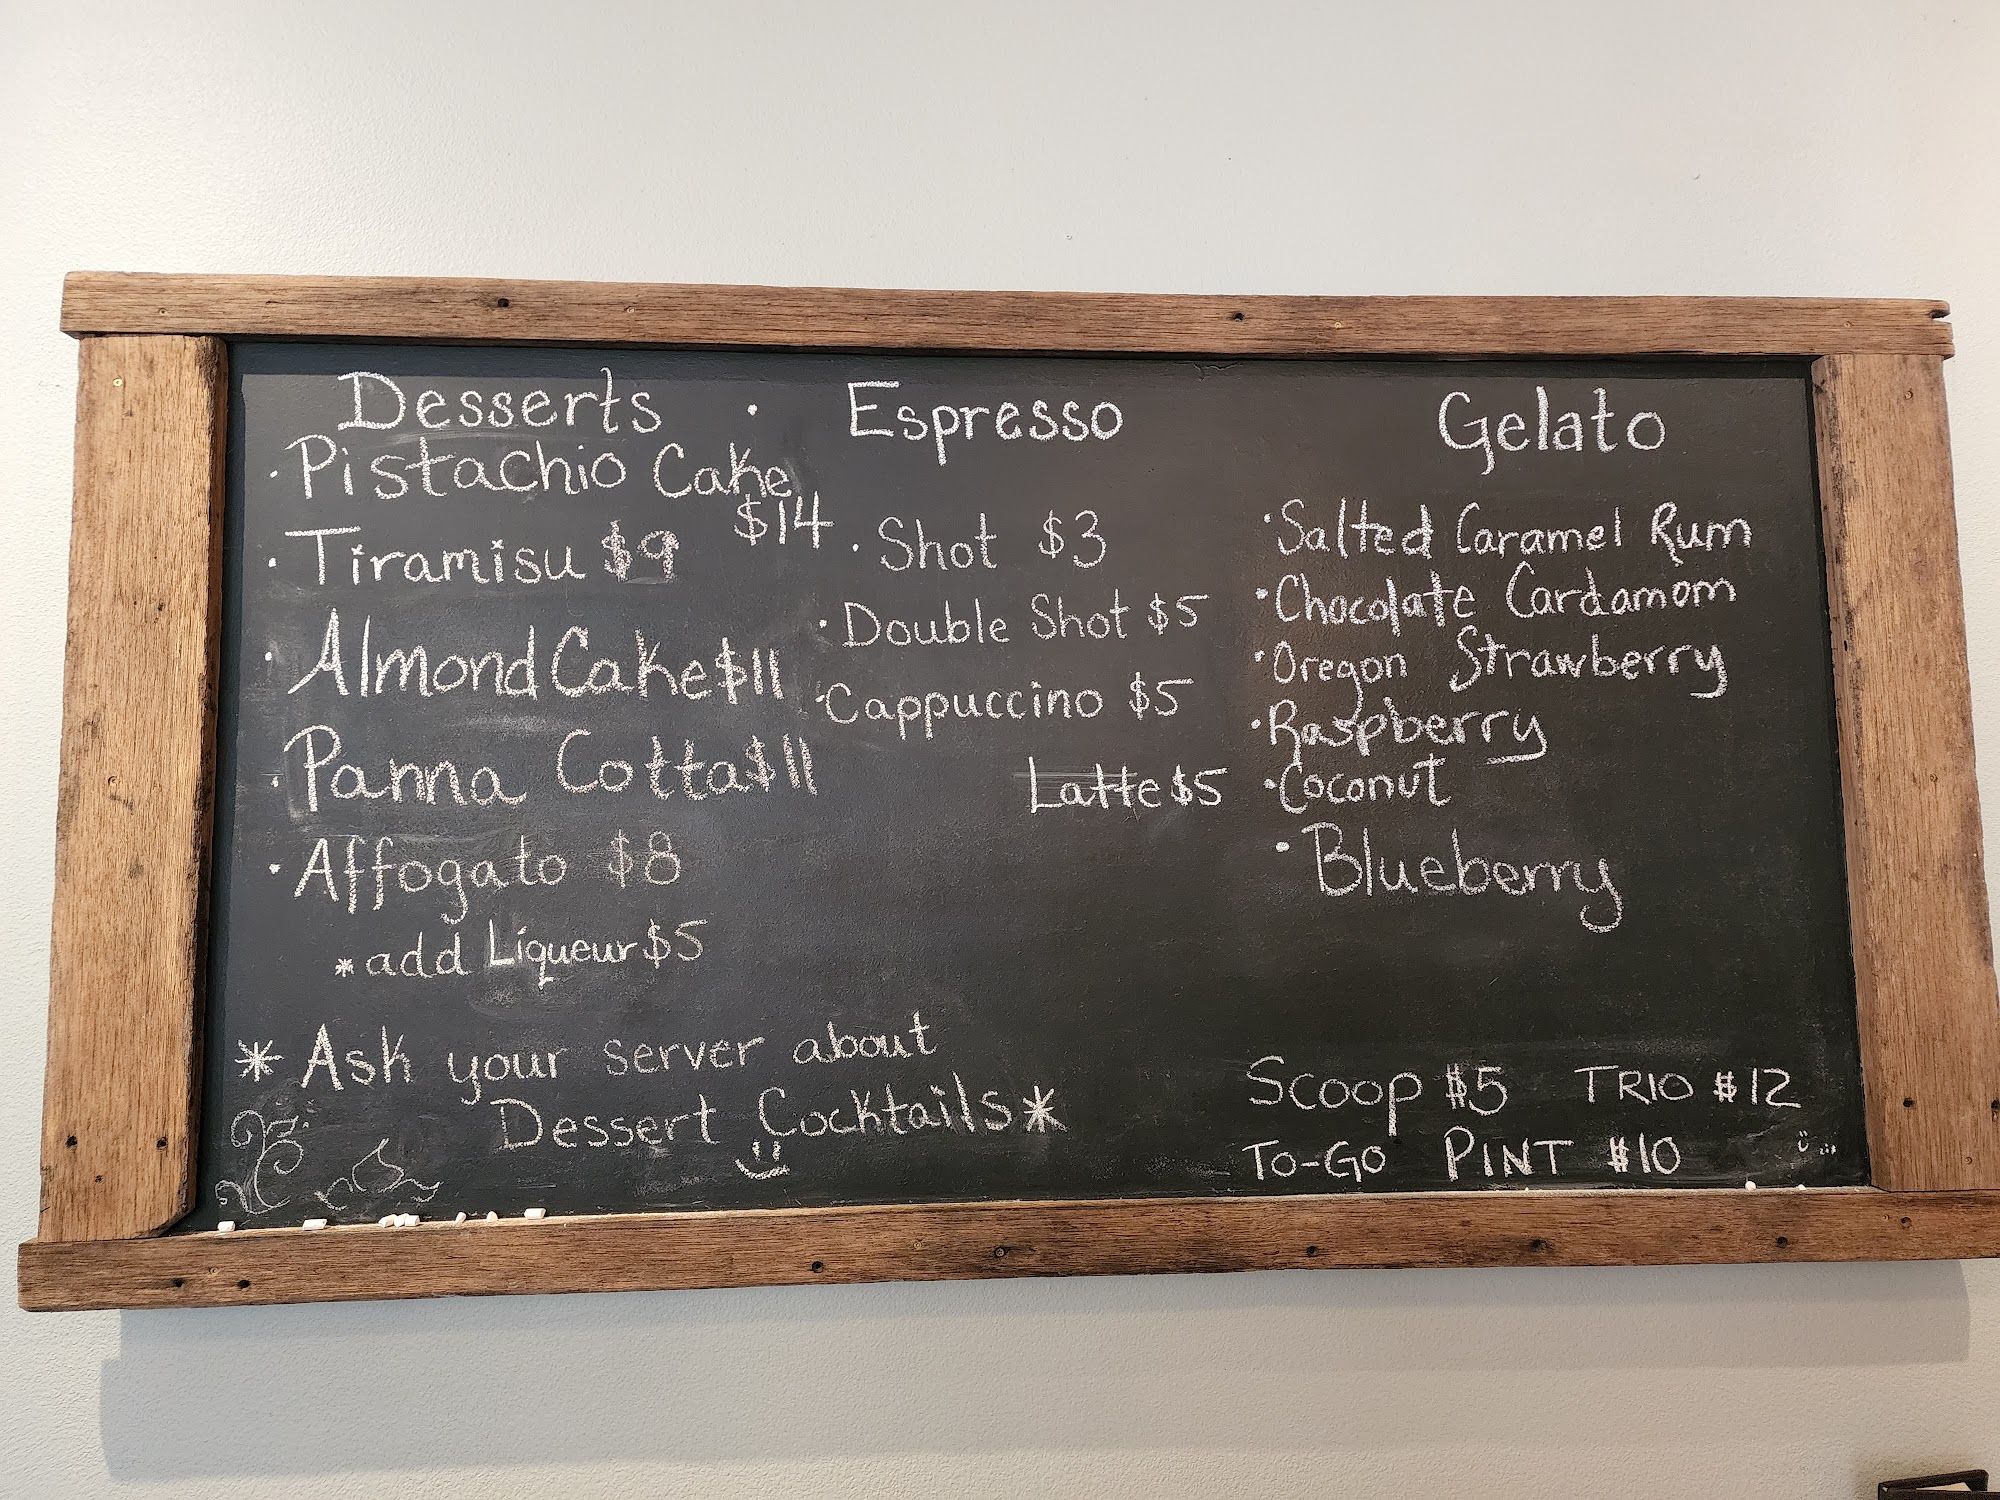 Desserts
· Pistachio Cake
$14
· Tiramisu $9
· Almond Cake $11
· Panna Cotta $11
· Affogato $8
* add Liqueur $5
* Ask your server about
Dessert Cocktails *
· Espresso
· Shot $3
· Double Shot $5
· Cappuccino $5
Latte $5
Gelato
· Salted Caramel Rum
· Chocolate Cardamom
· Oregon Strawberry
· Raspberry
· Coconut
· Blueberry
Scoop $5 TRIO $12
To-Go PINT $10